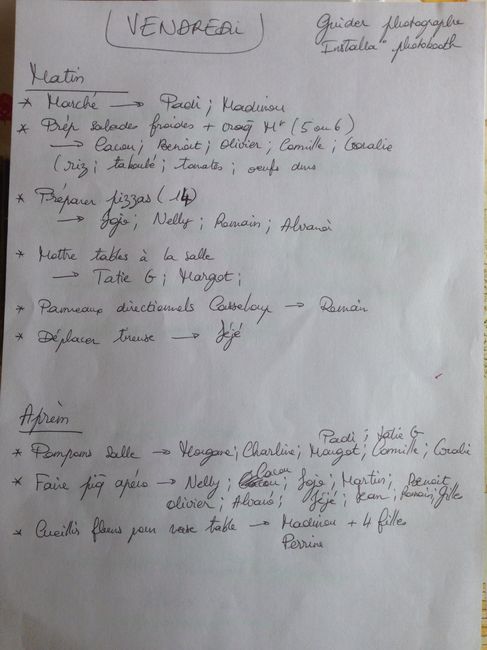 VENDREDI
Guider photographe
Installa° photobooth
Matin
* Marché → Padi ; Madinou
* Prép salades froides + croq Mr (5 ou 6)
→ Cacou ; Benoît ; Olivier ; Camille ; Coralie
(riz ; taboulé ; tomates ; oeufs durs
* Préparer pizzas (14)
→ Jojo ; Nelly ; Romain ; Alvaro
* Mettre tables à la salle
→ Tatie G ; Margot ;
* Panneaux directionnels → Romain
* Déplacer → Jéjé
Aprèm
Padi ; Tatie G
* Pompons salle → Morgane ; Charline ; Margot ; Camille ; Coralie
* Faire piq apéro → Nelly ; Cacou ; Jojo ; Martin ; Benoît
Olivier ; Alvaro ; Jéjé ; Jean ; Romain ; Gilles
* Cueillir fleurs pour vase table → Madinou + 4 filles
Perrine